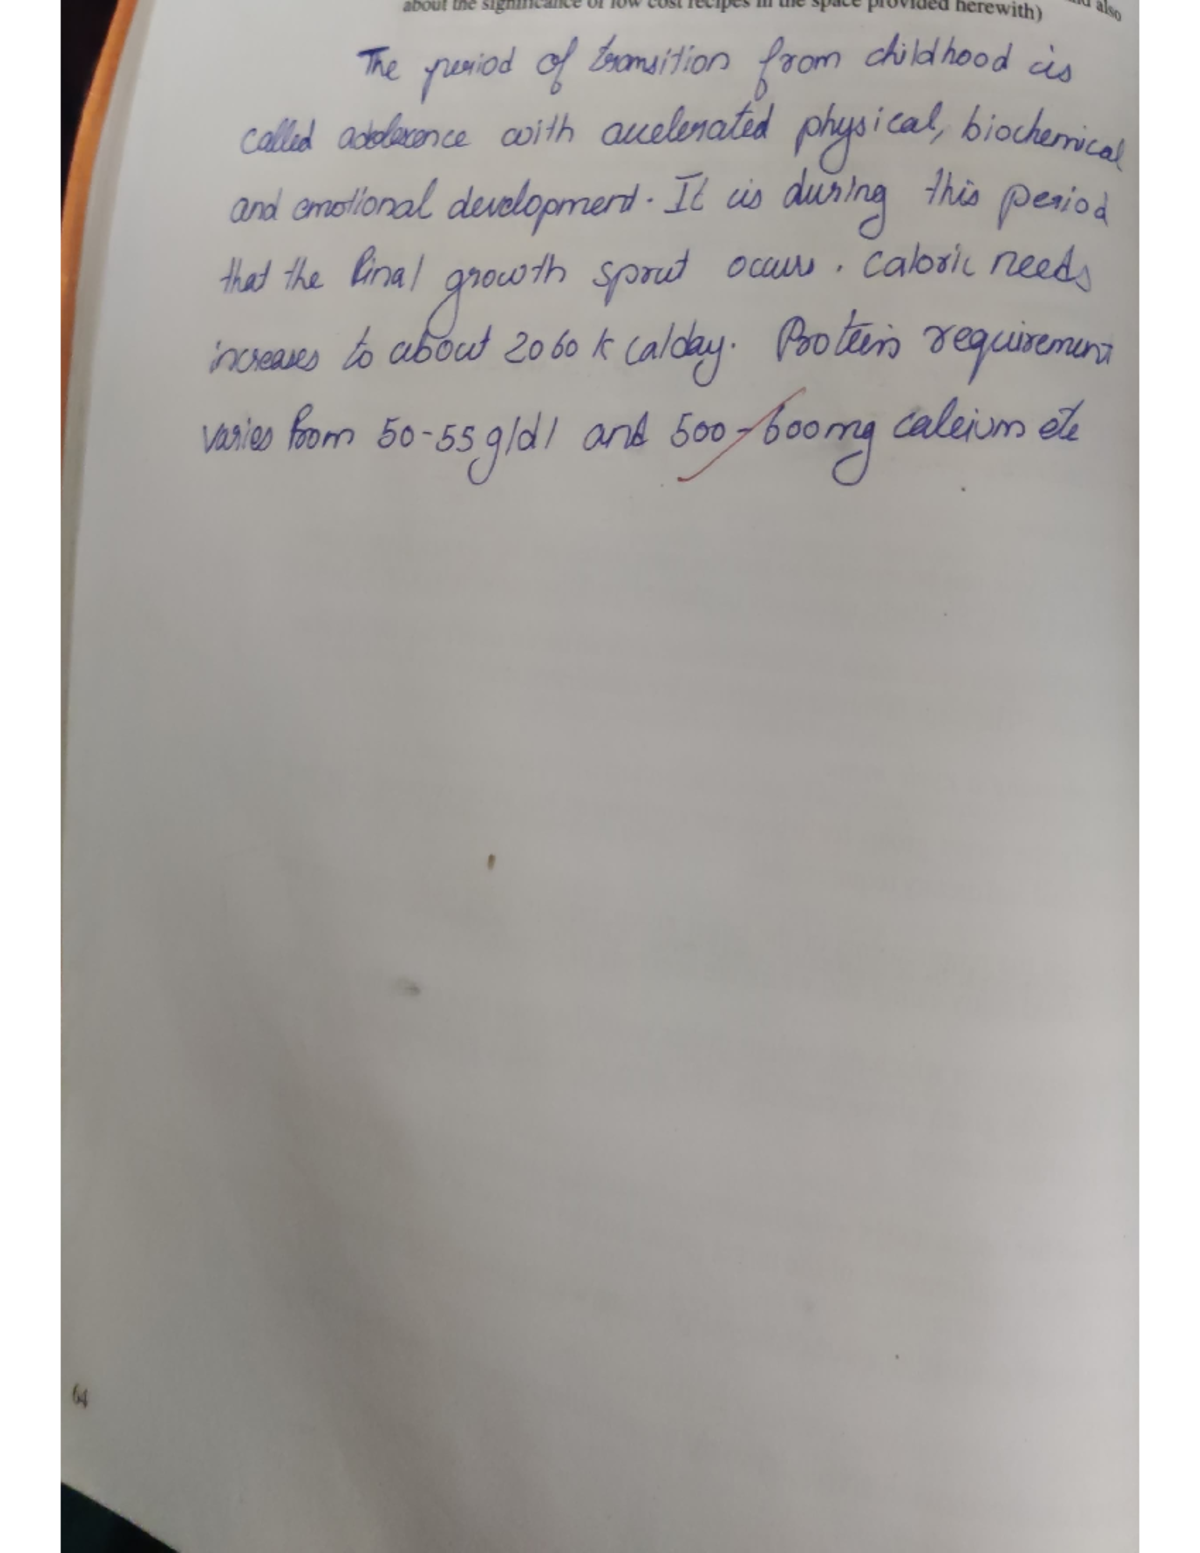 about the significance of low cost recipes in the space provided herewith) also
The period of transition from childhood is
called adolexence with accelerated physical, biochemical
and emotional development. It is during this period
that the final growth sprut occurs. Caloric needs
increases to about 2060 k cal/day. Protein requirement
varies from 50-55g/dl and 500-600mg calcium etc
64